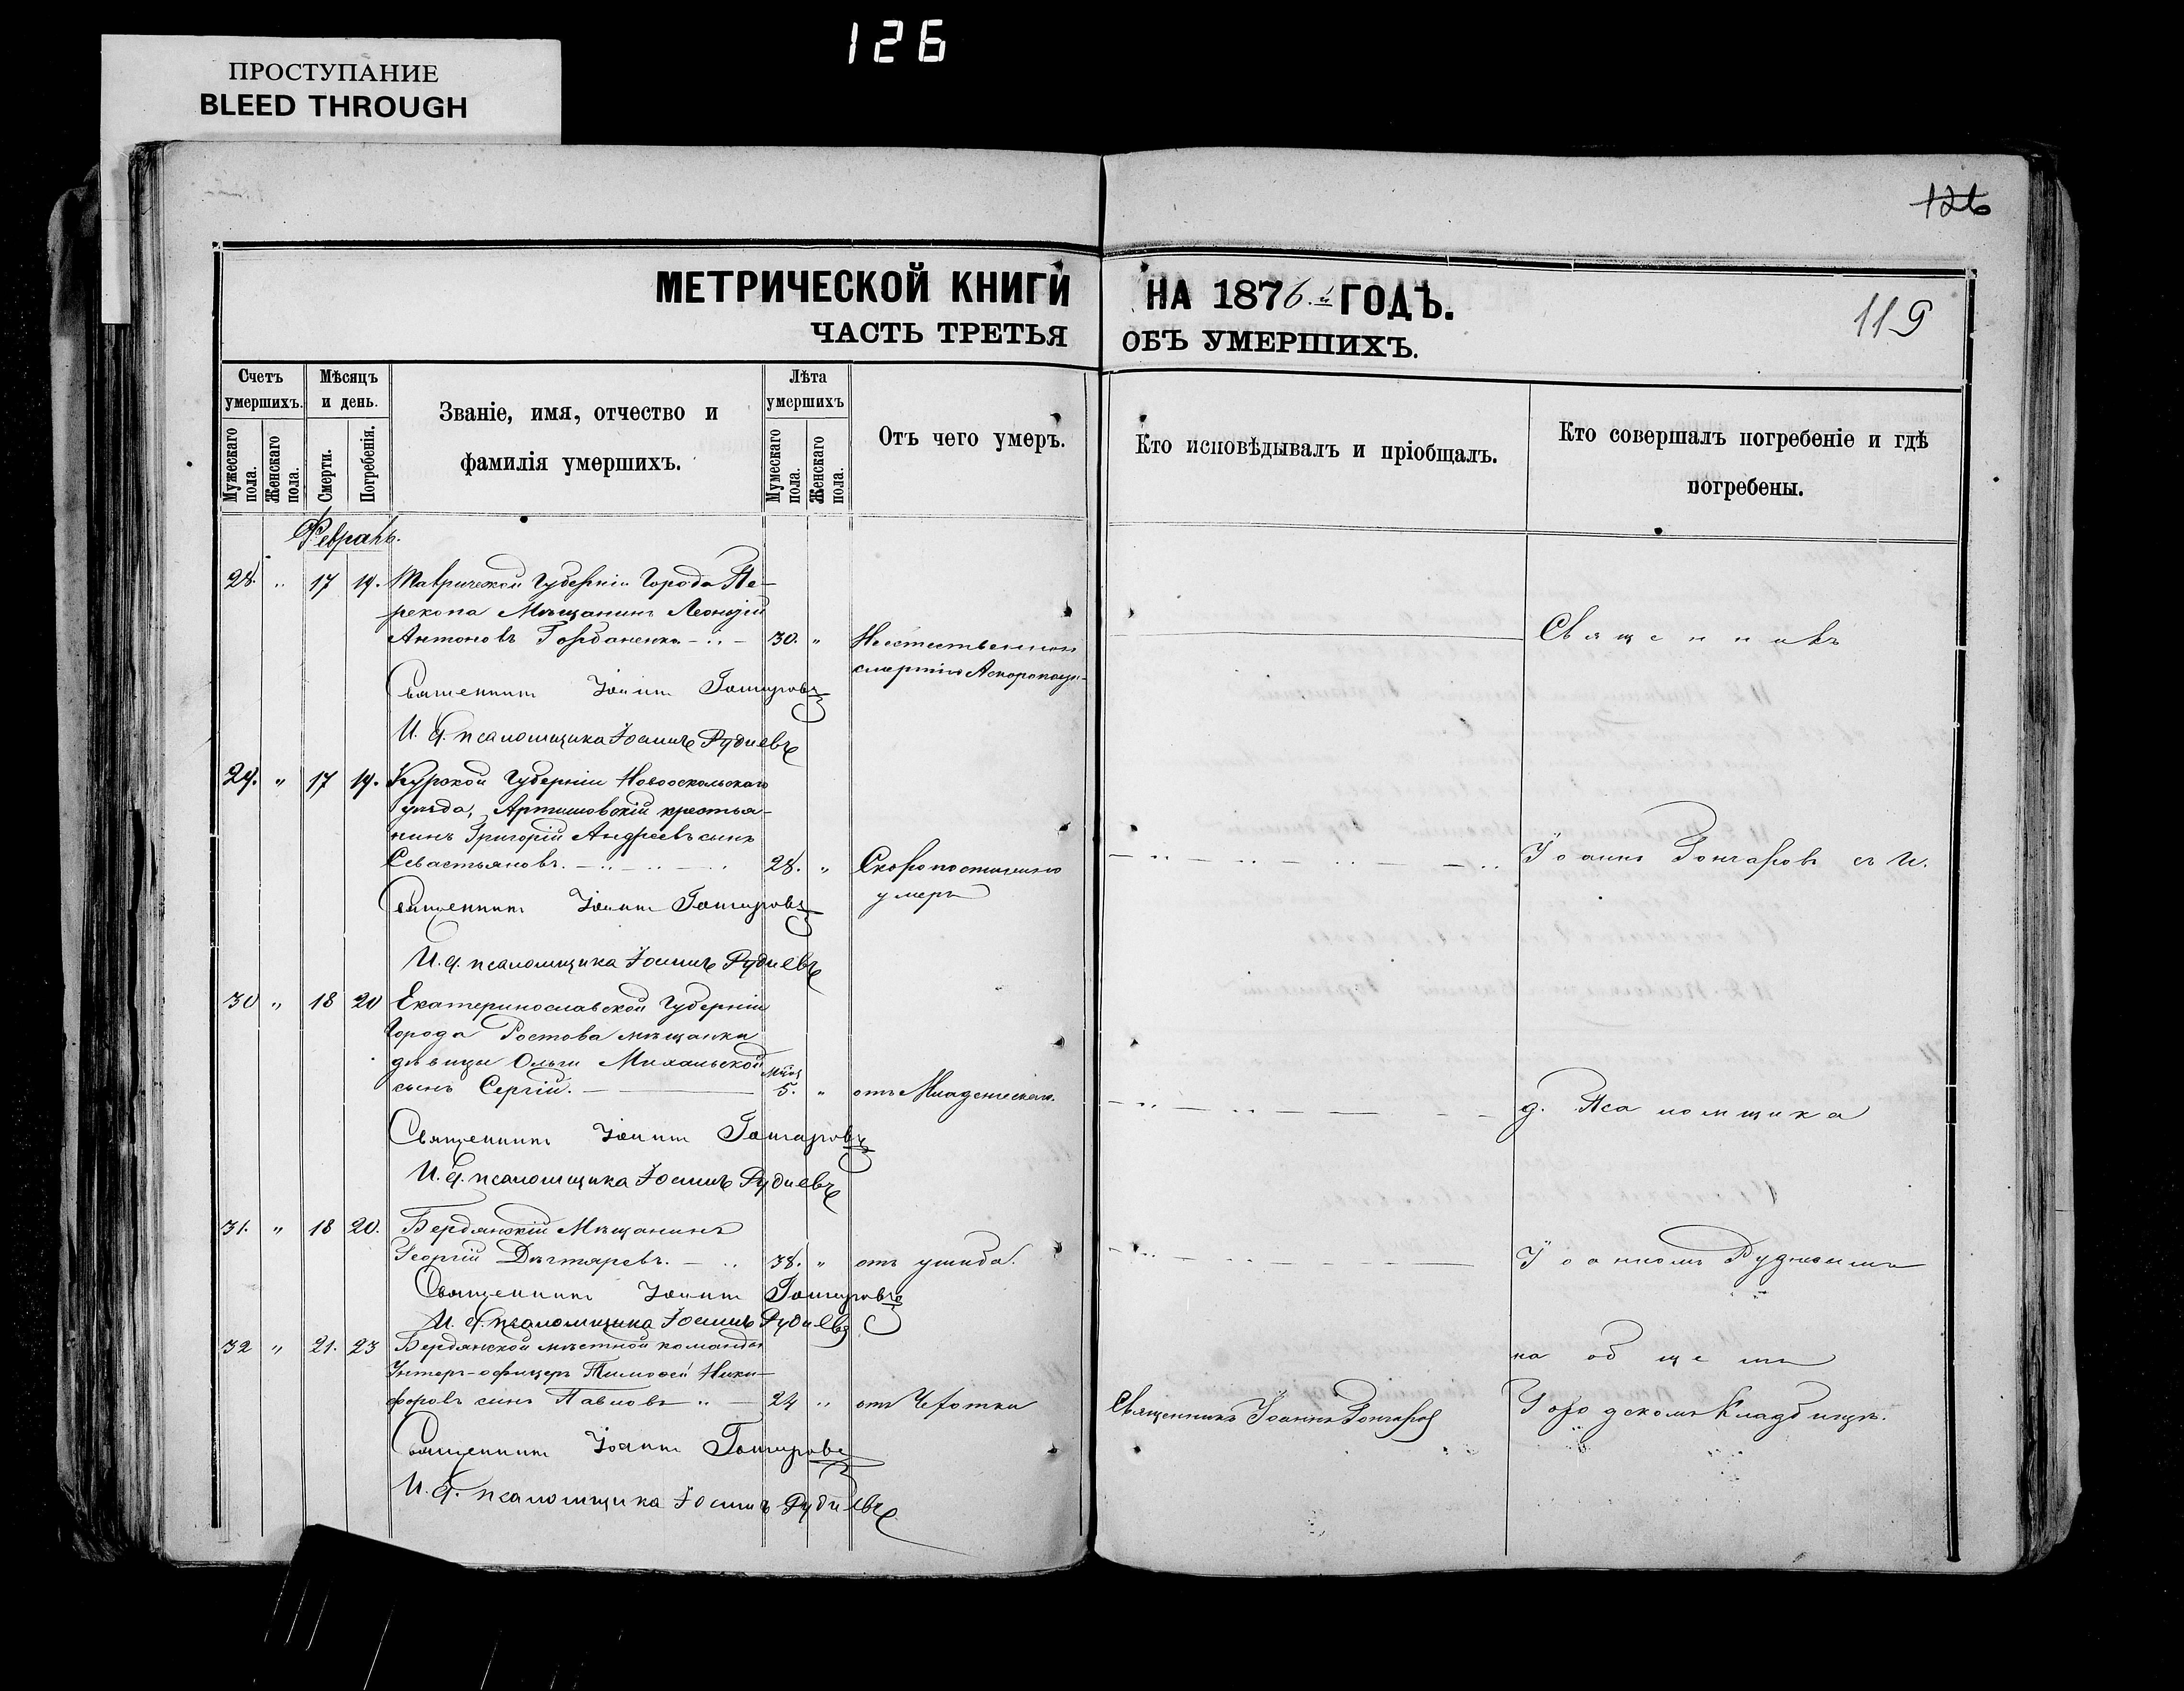 126
ПРОСТУПАНИЕ
BLEED THROUGH
126
МЕТРИЧЕСКОЙ КНИГИ НА 1876.й ГОДЪ.
119
ЧАСТЬ ТРЕТЬЯ ОБЪ УМЕРШИХЪ.
Счетъ умершихъ.
Мужескаго пола.
Женскаго пола.
Мѣсяцъ и день.
Смерти.
Погребенія.
Званіе, имя, отчество и
фамилія умершихъ.
Лѣта умершихъ
Мужескаго пола.
Женскаго пола.
Отъ чего умеръ.
Кто исповѣдывалъ и пріобщалъ.
Кто совершалъ погребеніе и гдѣ
погребены.
Февраль.
28. " 17 19. Таврической Губерніи Города Пе-
рекопа Мѣщанинъ Леонтій
Антоновъ Горбаненко 30. " Неестественною
смертію
Священникъ
Священникъ Іоаннъ Гончаровъ
И. д. псаломщика Іоаннъ Рудневъ
29. " 17 19. Курской Губерніи Новооскольскаго
уѣзда, крестья-
нинъ Григорій Андреевъ сынъ
Севастьяновъ. 28. " Скоропостижно
умеръ
Іоаннъ Гончаровъ съ И.
Священникъ Іоаннъ Гончаровъ
И. д. псаломщика Іоаннъ Рудневъ
30 " 18 20 Екатеринославской Губерніи
Города Ростова мѣщанки
дѣвицы Ольги Михальской
сынъ Сергій. 5. " отъ Младенческой.
д. Псаломщика
Священникъ Іоаннъ Гончаровъ
И. д. псаломщика Іоаннъ Рудневъ
31. " 18 20. Бердянскій Мѣщанинъ
Георгій Дегтяревъ. 38. " отъ ушиба.
Іоанномъ Рудневымъ
Священникъ Іоаннъ Гончаровъ
И. д. псаломщика Іоаннъ Рудневъ
32 " 21. 23 Бердянской мѣстной команды
Унтеръ-офицеръ Тимофей Ники-
форовъ сынъ Павловъ 24 " отъ Чахотки
Священникъ Іоаннъ Гончаровъ
на общемъ
Городскомъ Кладбищѣ.
Священникъ Іоаннъ Гончаровъ
И. д. псаломщика Іоаннъ Рудневъ